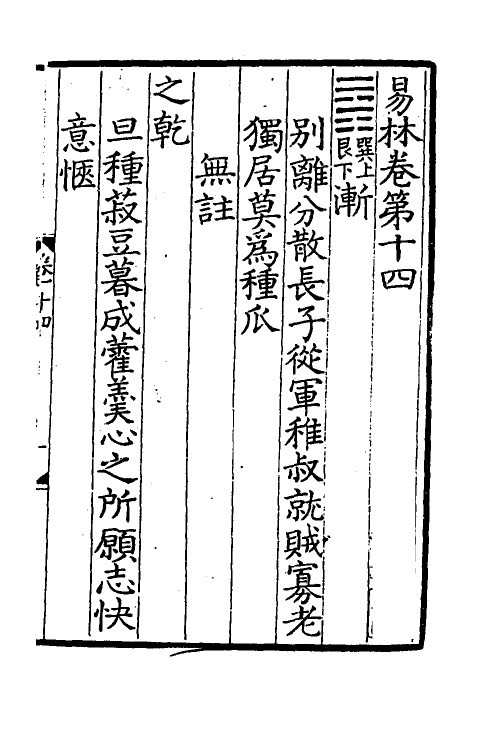 易林卷第十四
䷴巽上艮下漸
別離分散長子從軍稚叔就賊寡老
獨居莫為種瓜
無註
之乾
旦種菽豆暮成藿羹心之所願志快
意愜
卷十四